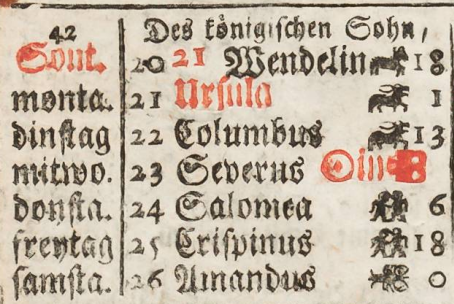 42 Des königischen Sohn,
Sont. 20 21 Wendelin 18
monta. 21 Ursula 1
dinstag 22 Columbus 13
mitwo. 23 Severus
donsta. 24 Salomea 6
freytag 25 Crispinus 18
samsta. 26 Amandus 0